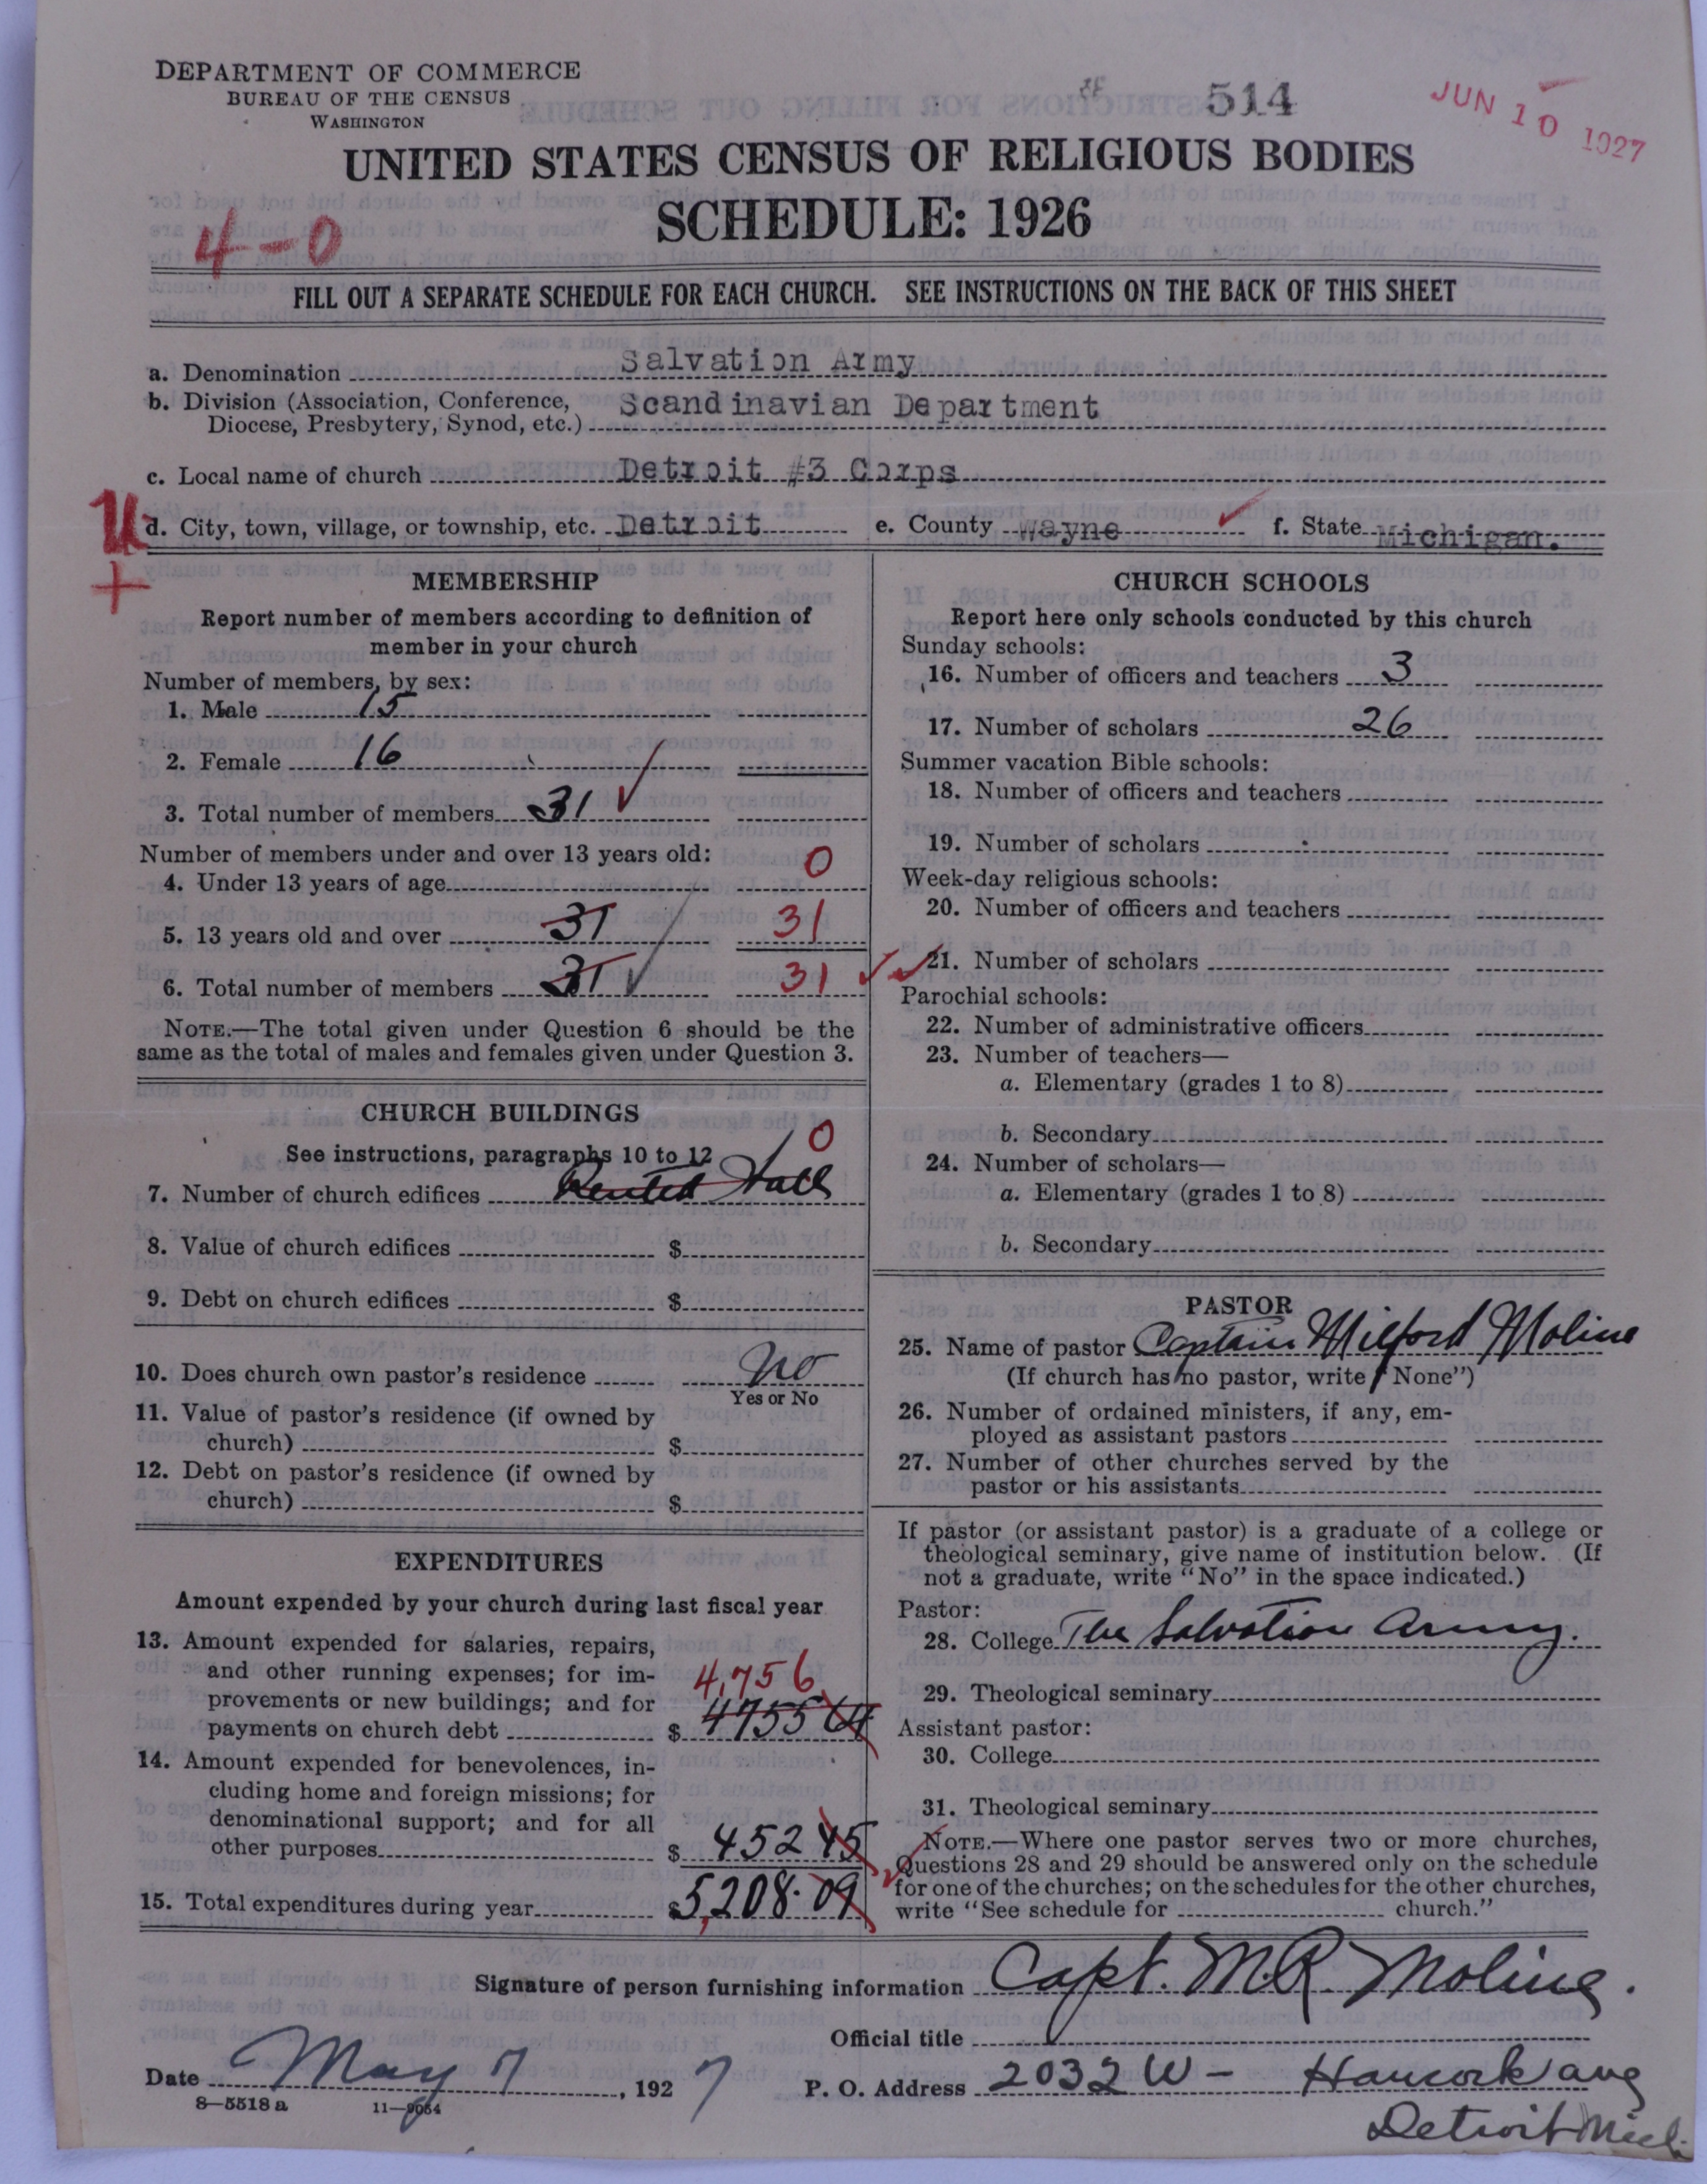 DEPARTMENT OF COMMERCE
BUREAU OF THE CENSUS
WASHINGTON
514
JUN 10 1927
UNITED STATES CENSUS OF RELIGIOUS BODIES
SCHEDULE: 1926
4-0
FILL OUT A SEPARATE SCHEDULE FOR EACH CHURCH. SEE INSTRUCTIONS ON THE BACK OF THIS SHEET
a. Denomination Salvation Army
b. Division (Association, Conference, Diocese, Presbytery, Synod, etc.) Scandinavian Department
c. Local name of church Detroit #3 Corps
d. City, town, village, or township, etc. Detroit e. County Wayne f. State Michigan.
MEMBERSHIP
Report number of members according to definition of
member in your church
Number of members, by sex:
1. Male 15
2. Female 16
3. Total number of members 31
Number of members under and over 13 years old:
4. Under 13 years of age 0
5. 13 years old and over 31 31
6. Total number of members 31 31
NOTE.—The total given under Question 6 should be the
same as the total of males and females given under Question 3.
CHURCH BUILDINGS
See instructions, paragraphs 10 to 12
7. Number of church edifices Rented Hall 0
8. Value of church edifices $
9. Debt on church edifices $
10. Does church own pastor's residence No
Yes or No
11. Value of pastor's residence (if owned by
church) $
12. Debt on pastor's residence (if owned by
church) $
EXPENDITURES
Amount expended by your church during last fiscal year
13. Amount expended for salaries, repairs,
and other running expenses; for im-
provements or new buildings; and for
4,756
payments on church debt $ 4755 64
14. Amount expended for benevolences, in-
cluding home and foreign missions; for
denominational support; and for all
other purposes $ 452 45
15. Total expenditures during year $5,208.09
CHURCH SCHOOLS
Report here only schools conducted by this church
Sunday schools:
16. Number of officers and teachers 3
17. Number of scholars 26
Summer vacation Bible schools:
18. Number of officers and teachers
19. Number of scholars
Week-day religious schools:
20. Number of officers and teachers
21. Number of scholars
Parochial schools:
22. Number of administrative officers
23. Number of teachers—
a. Elementary (grades 1 to 8)
b. Secondary
24. Number of scholars—
a. Elementary (grades 1 to 8)
b. Secondary
PASTOR
25. Name of pastor Captain Milford Moline
(If church has no pastor, write "None")
26. Number of ordained ministers, if any, em-
ployed as assistant pastors
27. Number of other churches served by the
pastor or his assistants
If pastor (or assistant pastor) is a graduate of a college or
theological seminary, give name of institution below. (If
not a graduate, write "No" in the space indicated.)
Pastor:
28. College The Salvation Army.
29. Theological seminary
Assistant pastor:
30. College
31. Theological seminary
NOTE.—Where one pastor serves two or more churches,
Questions 28 and 29 should be answered only on the schedule
for one of the churches; on the schedules for the other churches,
write "See schedule for church."
Signature of person furnishing information Capt. M.R. Moline.
Official title
Date May 7, 1927 P. O. Address 2032 W- Hancock ave
Detroit Mich.
8—5518a 11—9054